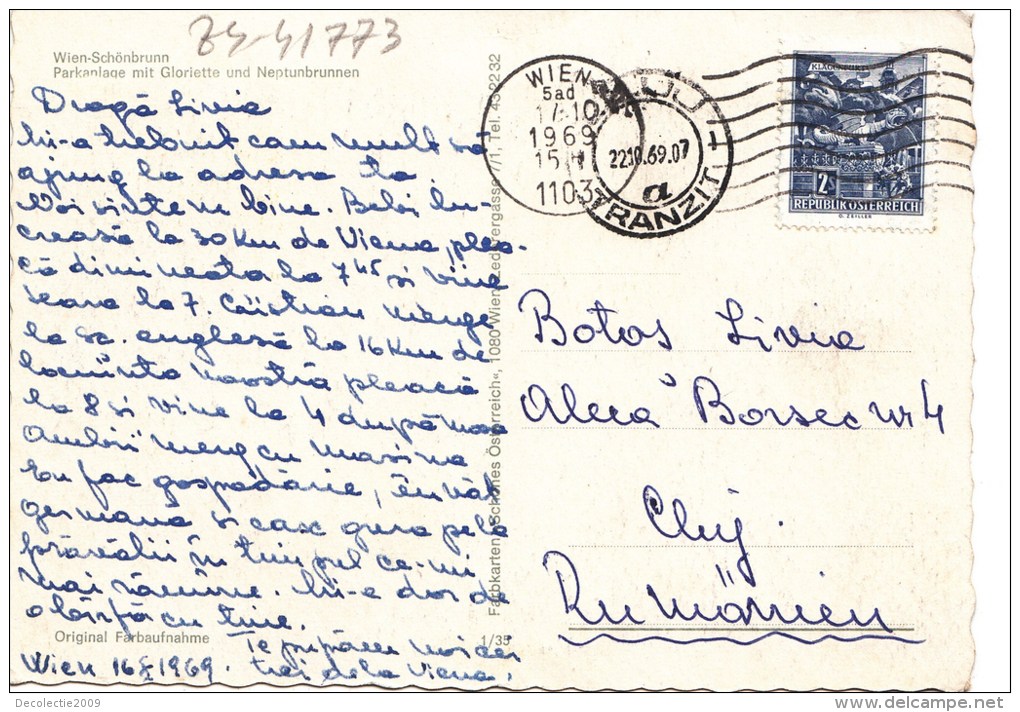 74-41773
Wien-Schönbrunn
Parkanlage mit Gloriette und Neptunbrunnen
Dragă Livia
Mi-a trebuit cam mult să
ajung la adresa ta.
Noi sîntem bine. Bebi lu-
crează la 30 Km de Viena, plea-
că dimineața la 7 45 și vine
seara la 7. Cristian merge
la sc. engleză la 16 Km de
locuința noastră pleacă
la 8 și vine la 4 după masa
Ambii merg cu mașina
Eu fac gospodărie, învăț
germană și casc gura pe la
prăvălii în timpul ce-mi
mai rămîne. Mi-e dor de
o bîrfă cu tine.
Te pupăm noi cei
trei de la Viena.
Wien 16 X 1969.
Original Farbaufnahme
1/35
Farbkarten „Schönes Österreich“, 1080 Wien, Lederergasse 7/1, Tel. 43 22 32
WIEN
5ad
17.10
1969
15 H
1103
22.10.69.07
a
TRANZIT
KLAGENFURT
2S
REPUBLIK ÖSTERREICH
O. ZEILLER
Botos Livia
Aleea Borsec nr 4
Cluj.
Rumänien
Decolectie2009
delcampe.net